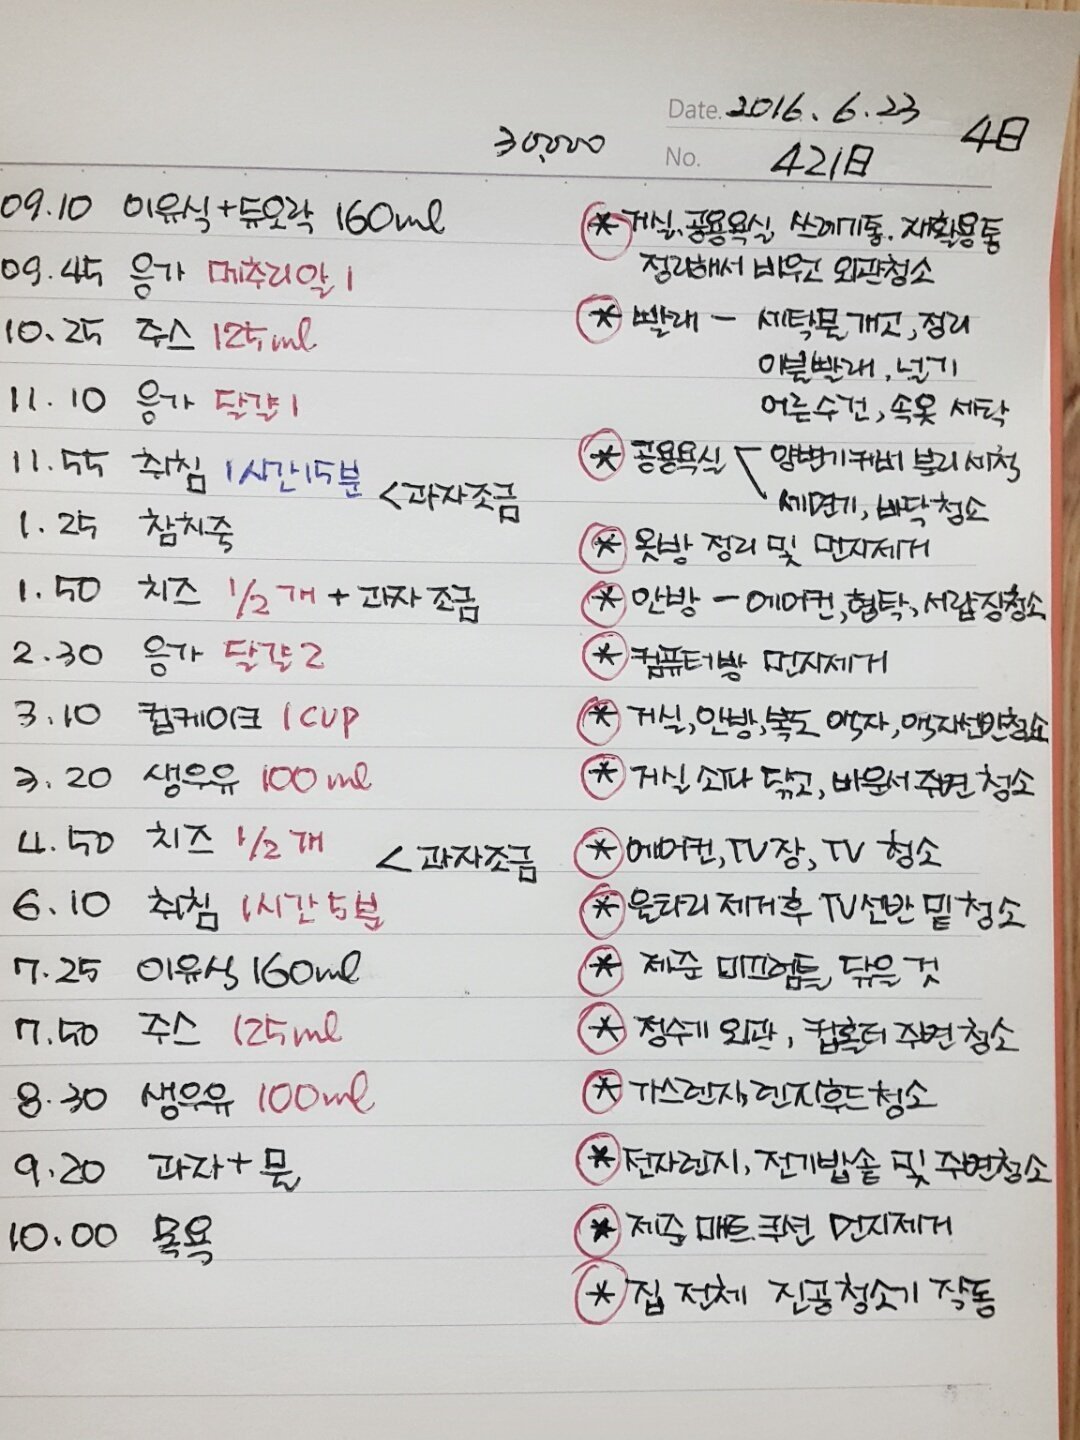 Date. 2016. 6. 23
30,000
No. 421日
4日
09.10 이유식+듀오락 160ml
09.45 응가 메추리알 1
10.25 주스 125ml
11.10 응가 달걀 1
11.55 취침 1시간 15분
<과자조금
1.25 참치죽
1.50 치즈 1/2개 + 과자 조금
2.30 응가 달걀 2
3.10 컵케이크 1 CUP
3.20 생우유 100ml
4.50 치즈 1/2개
<과자조금
6.10 취침 1시간 5분
7.25 이유식 160ml
7.50 주스 125ml
8.30 생우유 100ml
9.20 과자+물
10.00 목욕
* 거실,공용욕실 쓰레기통. 재활용통
정리해서 비우고 외관청소
* 빨래 - 세탁물 개고, 정리
이불빨래, 널기
어른수건, 속옷 세탁
* 공용욕실 양변기커버 분리세척
세면기, 바닥청소
* 옷방 정리 및 먼지제거
* 안방 - 에어컨, 협탁, 서랍장청소
* 컴퓨터방 먼지제거
* 거실, 안방, 복도 액자, 액자선반청소
* 거실 소파 닦고, 바운서 주변 청소
* 에어컨, TV장, TV 청소
* 울타리 제거후 TV선반 밑 청소
* 제준 미끄럼틀, 닦을 것
* 정수기 외관, 컵홀더 주변 청소
* 가스렌지, 렌지후드 청소
* 전자렌지, 전기밥솥 및 주변청소
* 제준 매트.쿠션 먼지제거
* 집 전체 진공청소기 작동